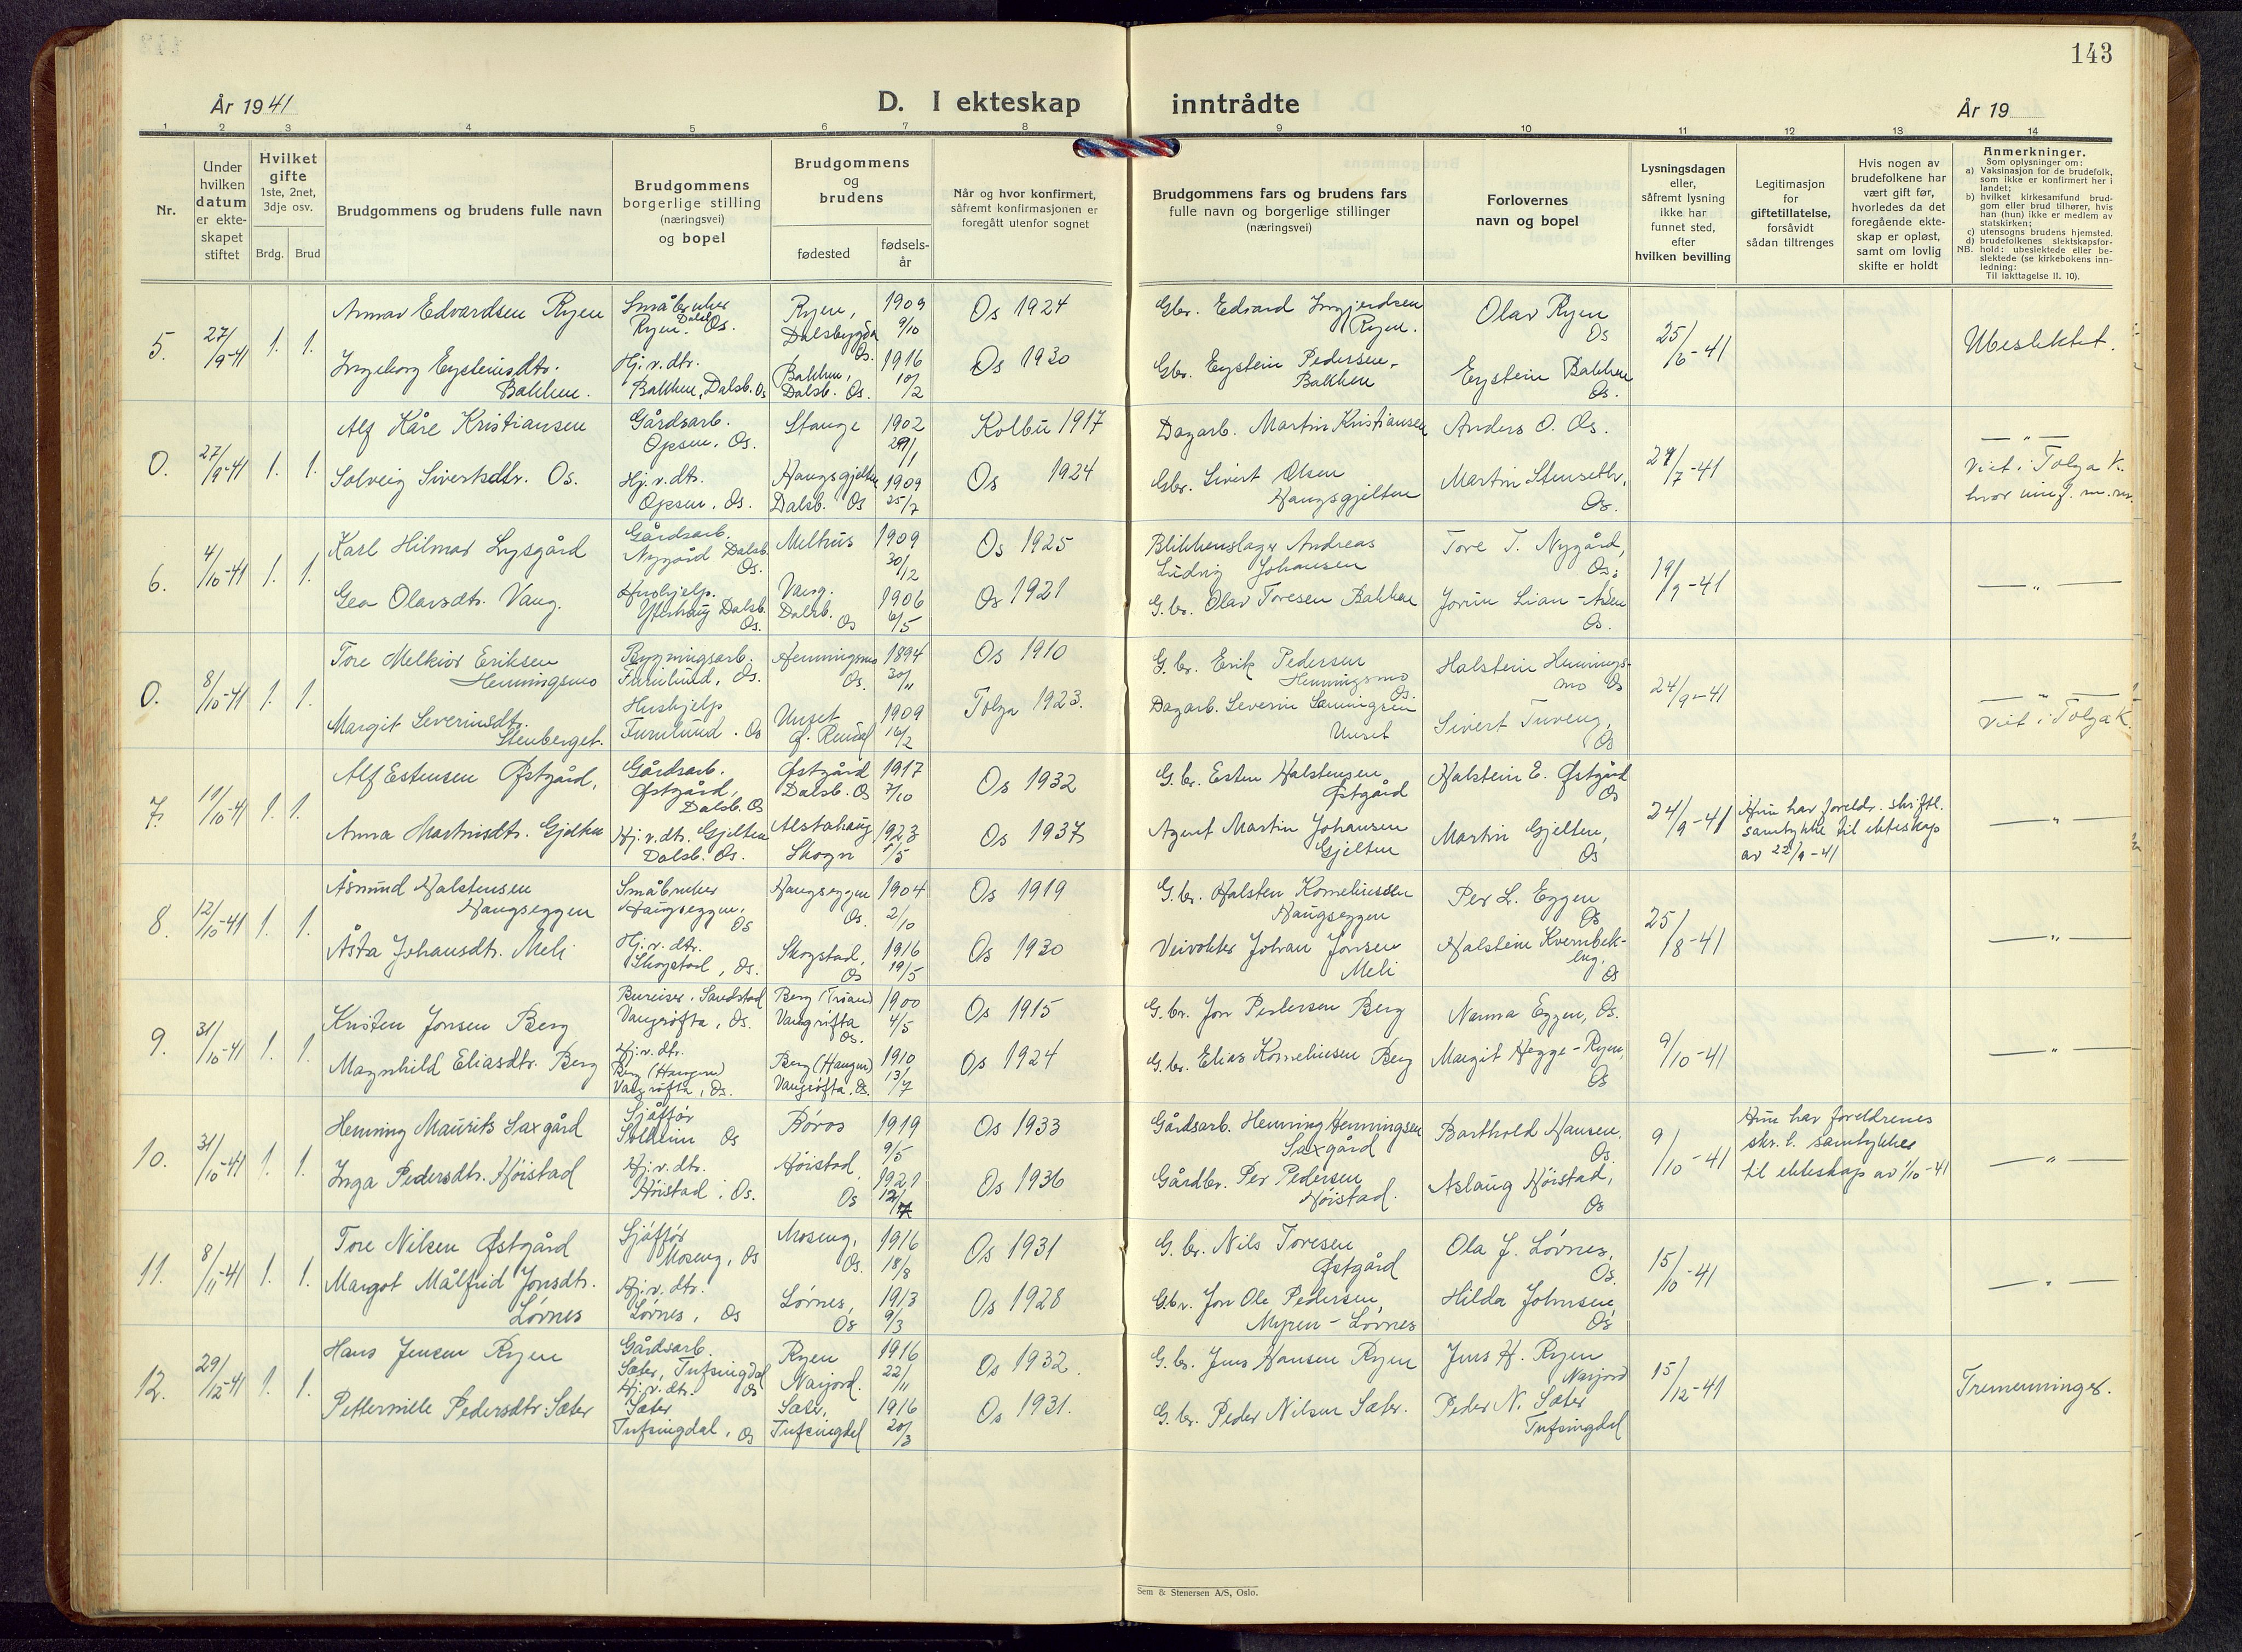 143
År 1941
D. I ekteskap
inntrådte
År 19
1
2
3
4
5
6
7
8
9
10
11
12
13
14
Nr.
Under
hvilken
datum
er ekte-
skapet
stiftet
Hvilket
gifte
1ste, 2net,
3dje osv.
Brdg.
Brud
Brudgommens og brudens fulle navn
Brudgommens
borgerlige stilling
(næringsvei)
og bopel
Brudgommens
og
brudens
fødested
fødsels-
år
Når og hvor konfirmert,
såfremt konfirmasjonen er
foregått utenfor sognet
Brudgommens fars og brudens fars
fulle navn og borgerlige stillinger
(næringsvei)
Forlovernes
navn og bopel
Lysningsdagen
eller,
såfremt lysning
ikke har
funnet sted,
efter
hvilken bevilling
Legitimasjon
for
giftetillatelse,
forsåvidt
sådan tiltrenges
Hvis nogen av
brudefolkene har
vært gift før,
hvorledes da det
foregående ekte-
skap er opløst,
samt om lovlig
skifte er holdt
Anmerkninger.
Som oplysninger om:
a) Vaksinasjon for de brudefolk,
som ikke er konfirmert her i
landet;
b) hvilket kirkesamfund brud-
gom eller brud tilhører, hvis
han (hun) ikke er medlem av
statskirken;
c) utensogns brudens hjemsted.
d) brudefolkenes slektskapsfor-
NB. hold: ubeslektede eller be-
slektede (se kirkebokens inn-
ledning:
Til iakttagelse II. 10).
5.
27/9-41
1. 1.
Edvardsen Ryen
Småbruker
Ryen. Dalsb. Os.
Ryen,
Dalsbygda
Os.
1909
9/10
Os 1924
Gbr. Edvard Ingjerdsen
Ryen.
Olav Ryen
Os
25/6-41
Ubeslektet.
Ingeborg Eysteinsdtr.
Bakken.
Hj.v.dtr.
Bakken, Dalsb. Os
Bakken,
Dalsb. Os.
1916
10/2
Os 1930
Gbr. Eystein Pedersen,
Bakken
Eystein Bakken
Os.
0.
27/9-41
1. 1.
Alf Kåre Kristiansen
Gårdsarb.
Opsen. Os.
Stange
1902
Kolbu 1917
Dagarb. Martin Kristiansen
Anders O. Os.
/7-41
— " —
Viet i Tolga K.
Solveig Sivertsdtr. Os.
Hj.v.dtr.
Opsen, Os.
Haugsgjelten
Dalsb. Os
1909
25/7
Os 1924
Gbr. Sivert Olsen
Haugsgjelten
Martin Stensethr,
Os.
6.
4/10-41
1. 1.
Karl Hilmar Lysgård
Gårdsarb.
Nygård Dalsb.
Os.
Melhus
1909
30/12
Os 1925
Blikkenslager Andreas
Ludvig Johansen
Tore T. Nygård,
Os.
19/9-41
— " —
Gea Olavsdtr. Vang.
Hushjelp.
Ytterhaug Dalsb.
Os.
Vang.
Dalsb.
Os
1906
6/5
Os 1921
G.br. Olav Toresen Bakken
Jorun Lian-Aasen
Os.
0.
8/10-41
1. 1.
Tore Melkior Eriksen
Henningsmo
Bygningsarb.
Furulund, Os.
Henningsmo
Os.
1894
30/11
Os 1910
G.br. Erik Pedersen
Henningsmo
Os.
Halstein Hennings-
mo Os
24/9-41
— " —
Viet i Tolga K.
Margit Severinsdtr.
Stenberget.
Hushjelp
Furulund. Os
Unset
Ø. Rendal
1909
16/2
Tolga 1923.
Dagarb. Severin
Unset
Sivert Tuveng,
Os
7.
11/10-41
1. 1.
Alf Estensen Østgård,
Gårdsarb.
Østgård,
Dalsb. Os
Østgård
Dalsb. Os
1917
7/10
Os 1932
G.br. Esten Halstensen
Østgård
Halstein E. Østgård
Os
24/9-41
Hun har foreldr. skriftl.
samtykke til ekteskap
av 22/9-41
— " —
Anna Martinsdtr. Gjelten
Hj.v.dtr. Gjelten
Dalsb. Os.
Alstahaug
Skogn
1923
1/5
Os 1937
Agent Martin Johansen
Gjelten
Martin Gjelten,
Os
8.
12/10-41
1. 1.
Åsmund Halstensen
Haugseggen
Småbruker
Haugseggen,
Os
Haugseggen
Os.
1904
2/10
Os 1919
G.br. Halsten Korneliussen
Haugseggen
Per L. Eggen
Os
25/8-41
— " —
Åsta Johansdtr. Meli
Hj.v.dtr.
Skogstad, Os.
Skogstad,
Os
1916
19/5
Os 1930
Veivokter Johan Jonsen
Meli
Halstein Kvernbek-
Os
9.
31/10-41
1. 1.
Kristen Jonsen Berg
Bureiser. Sandstad
Vangrøfta, Os.
Berg (Trøan)
Vangrøfta
Os.
1900
4/5
Os 1915
G.br. Jon Pedersen Berg
Nanna Eggen, Os.
9/10-41
— " —
Magnhild Eliasdtr. Berg
Hj.v.dtr.
Berg (Haugen)
Vangrøfta, Os.
Berg (Haugen)
Vangrøfta. Os.
1910
13/7
Os 1924
G.br. Elias Korneliusen Berg
Margit Hegge-Ryen,
Os
10.
31/10-41
1. 1.
Henning Maurits Saxgård
Sjåffør
Solheim Os
Røros
1919
9/5
Os 1933
Gårdsarb. Henning Henningsen
Saxgård
Barthold Hansen,
Os.
9/10-41
Hun har foreldrenes
skr.l. samtykke
til ekteskap av 1/10-41
— " —
Inga Pedersdtr. Høistad
Hj.v.dtr.
Høistad. Os.
Høistad
Os
1921
Os 1936
Gårdbr. Per Pedersen
Høistad.
Aslaug Høistad,
Os
11.
8/11-41
1. 1.
Tore Nilsen Østgård
Sjåffør
Moseng, Os
Moseng,
Os.
1916
18/8
Os 1931
G.br. Nils Toresen
Østgård
Ola J. Lørnes,
Os.
15/10-41
— " —
Margot Målfrid Jonsdtr.
Lørnes
Hj.v.dtr.
Lørnes, Os
Lørnes,
Os
1913
9/3
Os 1928
G.br. Jon Ole Pedersen
Myren-Lørnes
Hilda Johnsen,
Os
12.
29/12-41
1. 1.
Hans Jensen Ryen
Gårdsarb.
Sæter, Tufsingdal
Os
Ryen
Narjord.
1916
22/11
Os 1932.
G.br. Jens Hansen Ryen
Jens H. Ryen
Narjord
15/12-41
Tremenninger.
Petternille Pedersdtr. Sæter
Hj.v.dtr.
Sæter
Tufsingdal, Os
Sæter,
Tufsingdal
1916
20/3
Os 1931.
G.br. Peder Nilsen Sæter.
Peder N. Sæter
Tufsingdal
Sem & Stenersen A/S, Oslo.